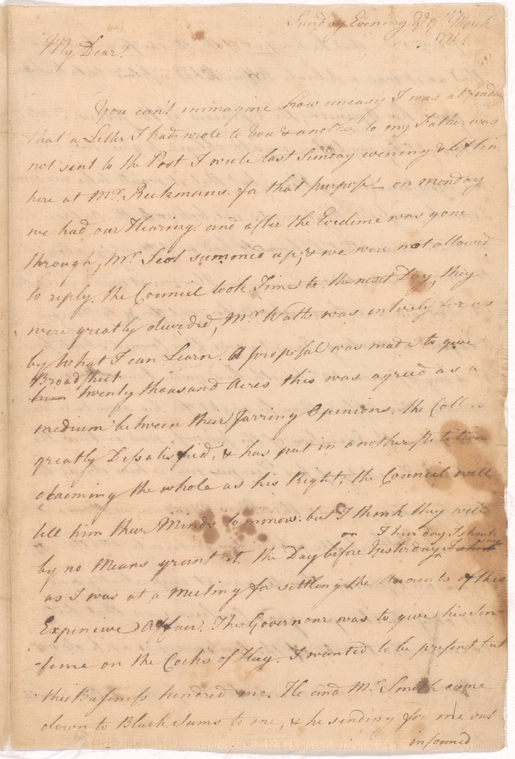 Sunday Evening 17th March
1771
My Dear.
You can't immagine how uneasy I was a finding
that a Letter I had wrote to You & another to my Father was
not sent to the Post I wrote last Sunday evening & left in
here at Mr. Beekmans for that purpose — on Monday
we had our Hearing and after the Evidence was gone
through, Mr Scot summed up, & we were not allowed
to reply. the Council took Time to the next Day, they
were greatly divided, Mr Watts was entirely for us
by what I can Learn. A proposal was made to give
Broadstreet
him twenty thousand Acres this was agreed as a
medium between their Jarring Opinions. the Coll. is
greatly Dissatisfied, & has put in another Petition
claiming the whole as his Right, the Council will
tell him their Minds tommow. but I think they will
by no Means grant it. the Day before Yesterday
on Thursday I should
as I was at a Meeting for settling the Accounts of this
Expensive Affair. The Governour was to give his Sen
-tence on the Cocks of Hay. I wanted to be present but
this Business hindred me. He and Mr. Smith came
down to Black Sams to me, & he sending for me out
informed